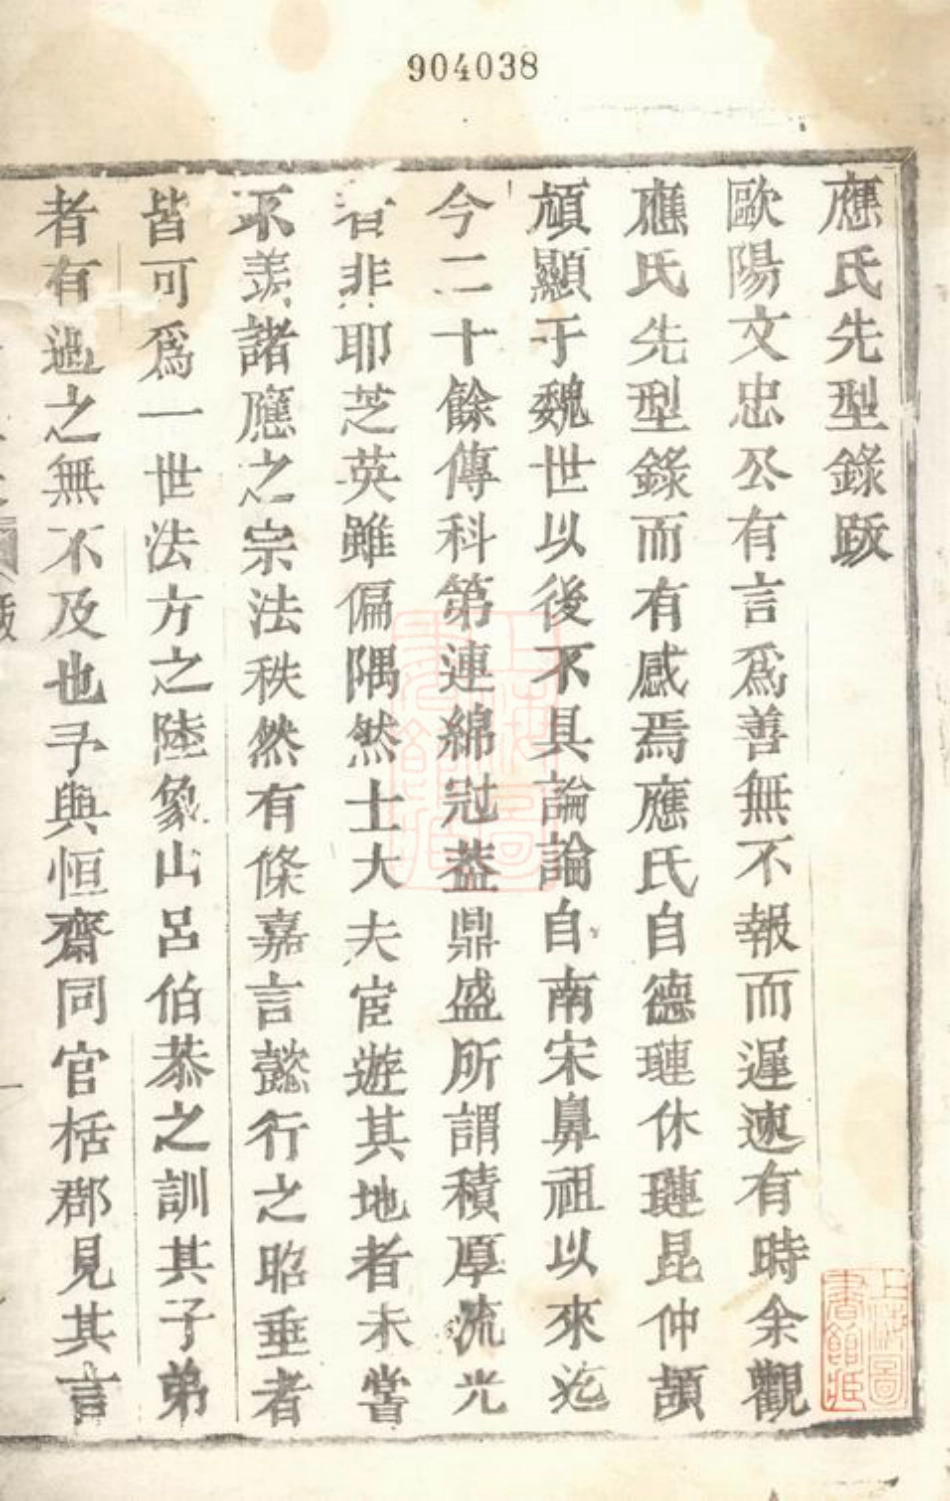 904038
應氏先型錄䟦
歐陽文忠公有言爲善無不報而遲速有時余觀
應氏先型錄而有感焉應氏自德璉休璉昆仲頡
頏顯于魏世以後不具論論自南宋鼻祖以來迄
今二十餘傳科第連綿冠葢鼎盛所謂積厚流光
者非耶芝英雖偏隅然士大夫宦遊其地者未嘗
不羨諸應之宗法秩然有條嘉言懿行之昭垂者
皆可爲一世法方之陸象山呂伯恭之訓其子弟
者有過之無不及也予與恒齋同官栝郡見其言
上海圖書館藏